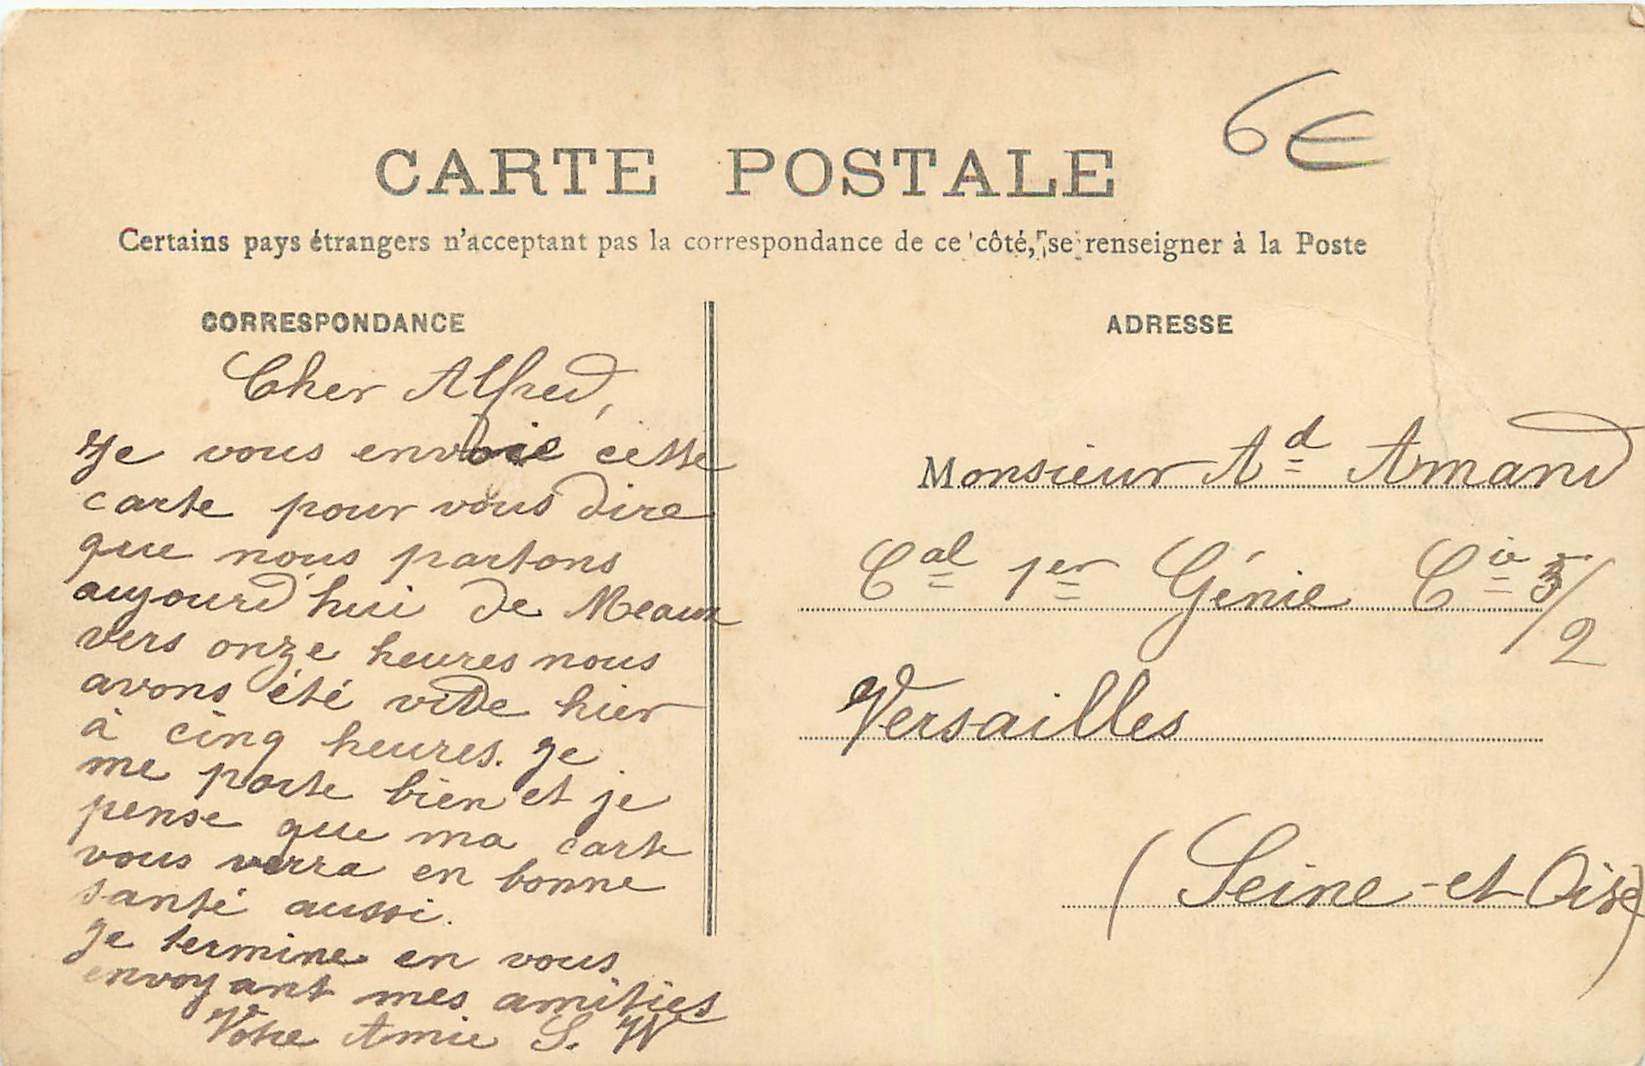 6€
CARTE POSTALE
Certains pays étrangers n'acceptant pas la correspondance de ce côté, se renseigner à la Poste
CORRESPONDANCE
Cher Alfred,
Je vous envoie cette
carte pour vous dire
que nous partons
aujourd'hui de Meaux
vers onze heures nous
avons été vite hier
à cinq heures. Je
me porte bien et je
pense que ma carte
vous verra en bonne
santé aussi.
Je termine en vous
envoyant mes amitiés
Votre Amie S. W
ADRESSE
Monsieur Ad Amand
Cal 1er Génie Cie 3/2
Versailles
(Seine-et-Oise)